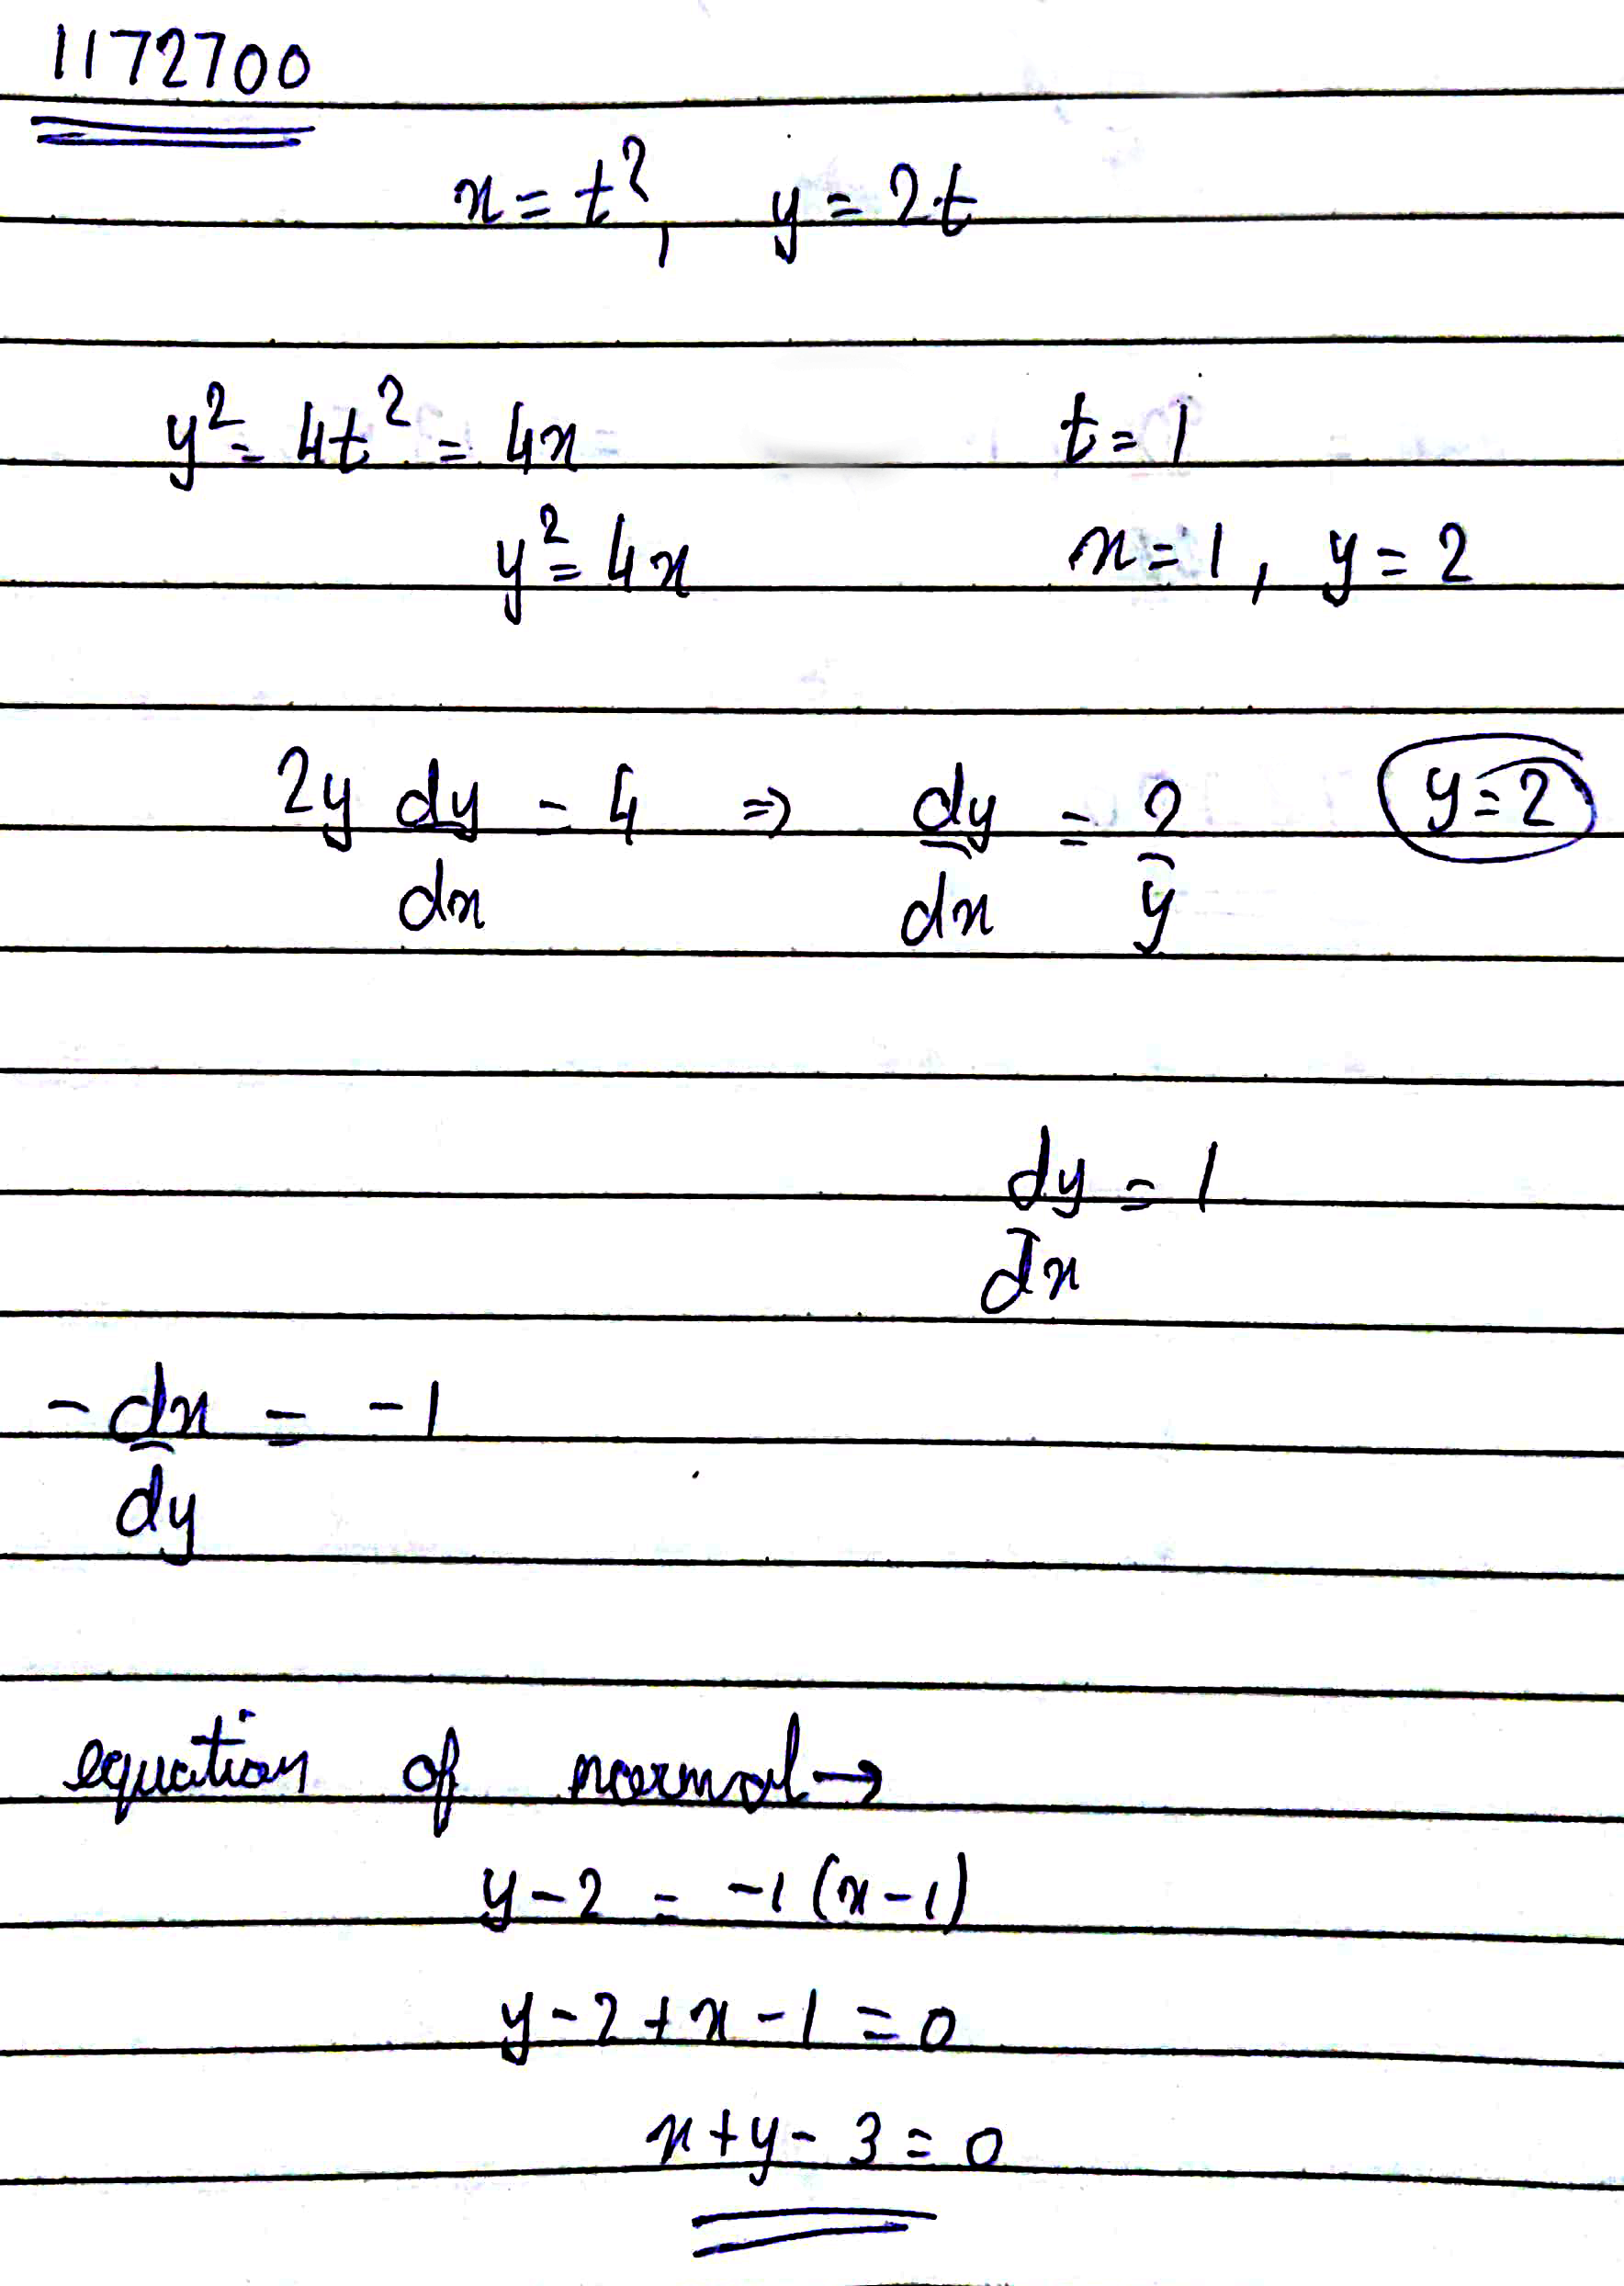 1172700
x = t², y = 2t
y² = 4t² = 4x t = 1
y² = 4x x = 1, y = 2
2y dy/dx = 4 ⇒ dy/dx = 2/y y = 2
dy/dx = 1
- dx/dy = -1
equation of normal →
y - 2 = -1 (x - 1)
y - 2 + x - 1 = 0
x + y - 3 = 0